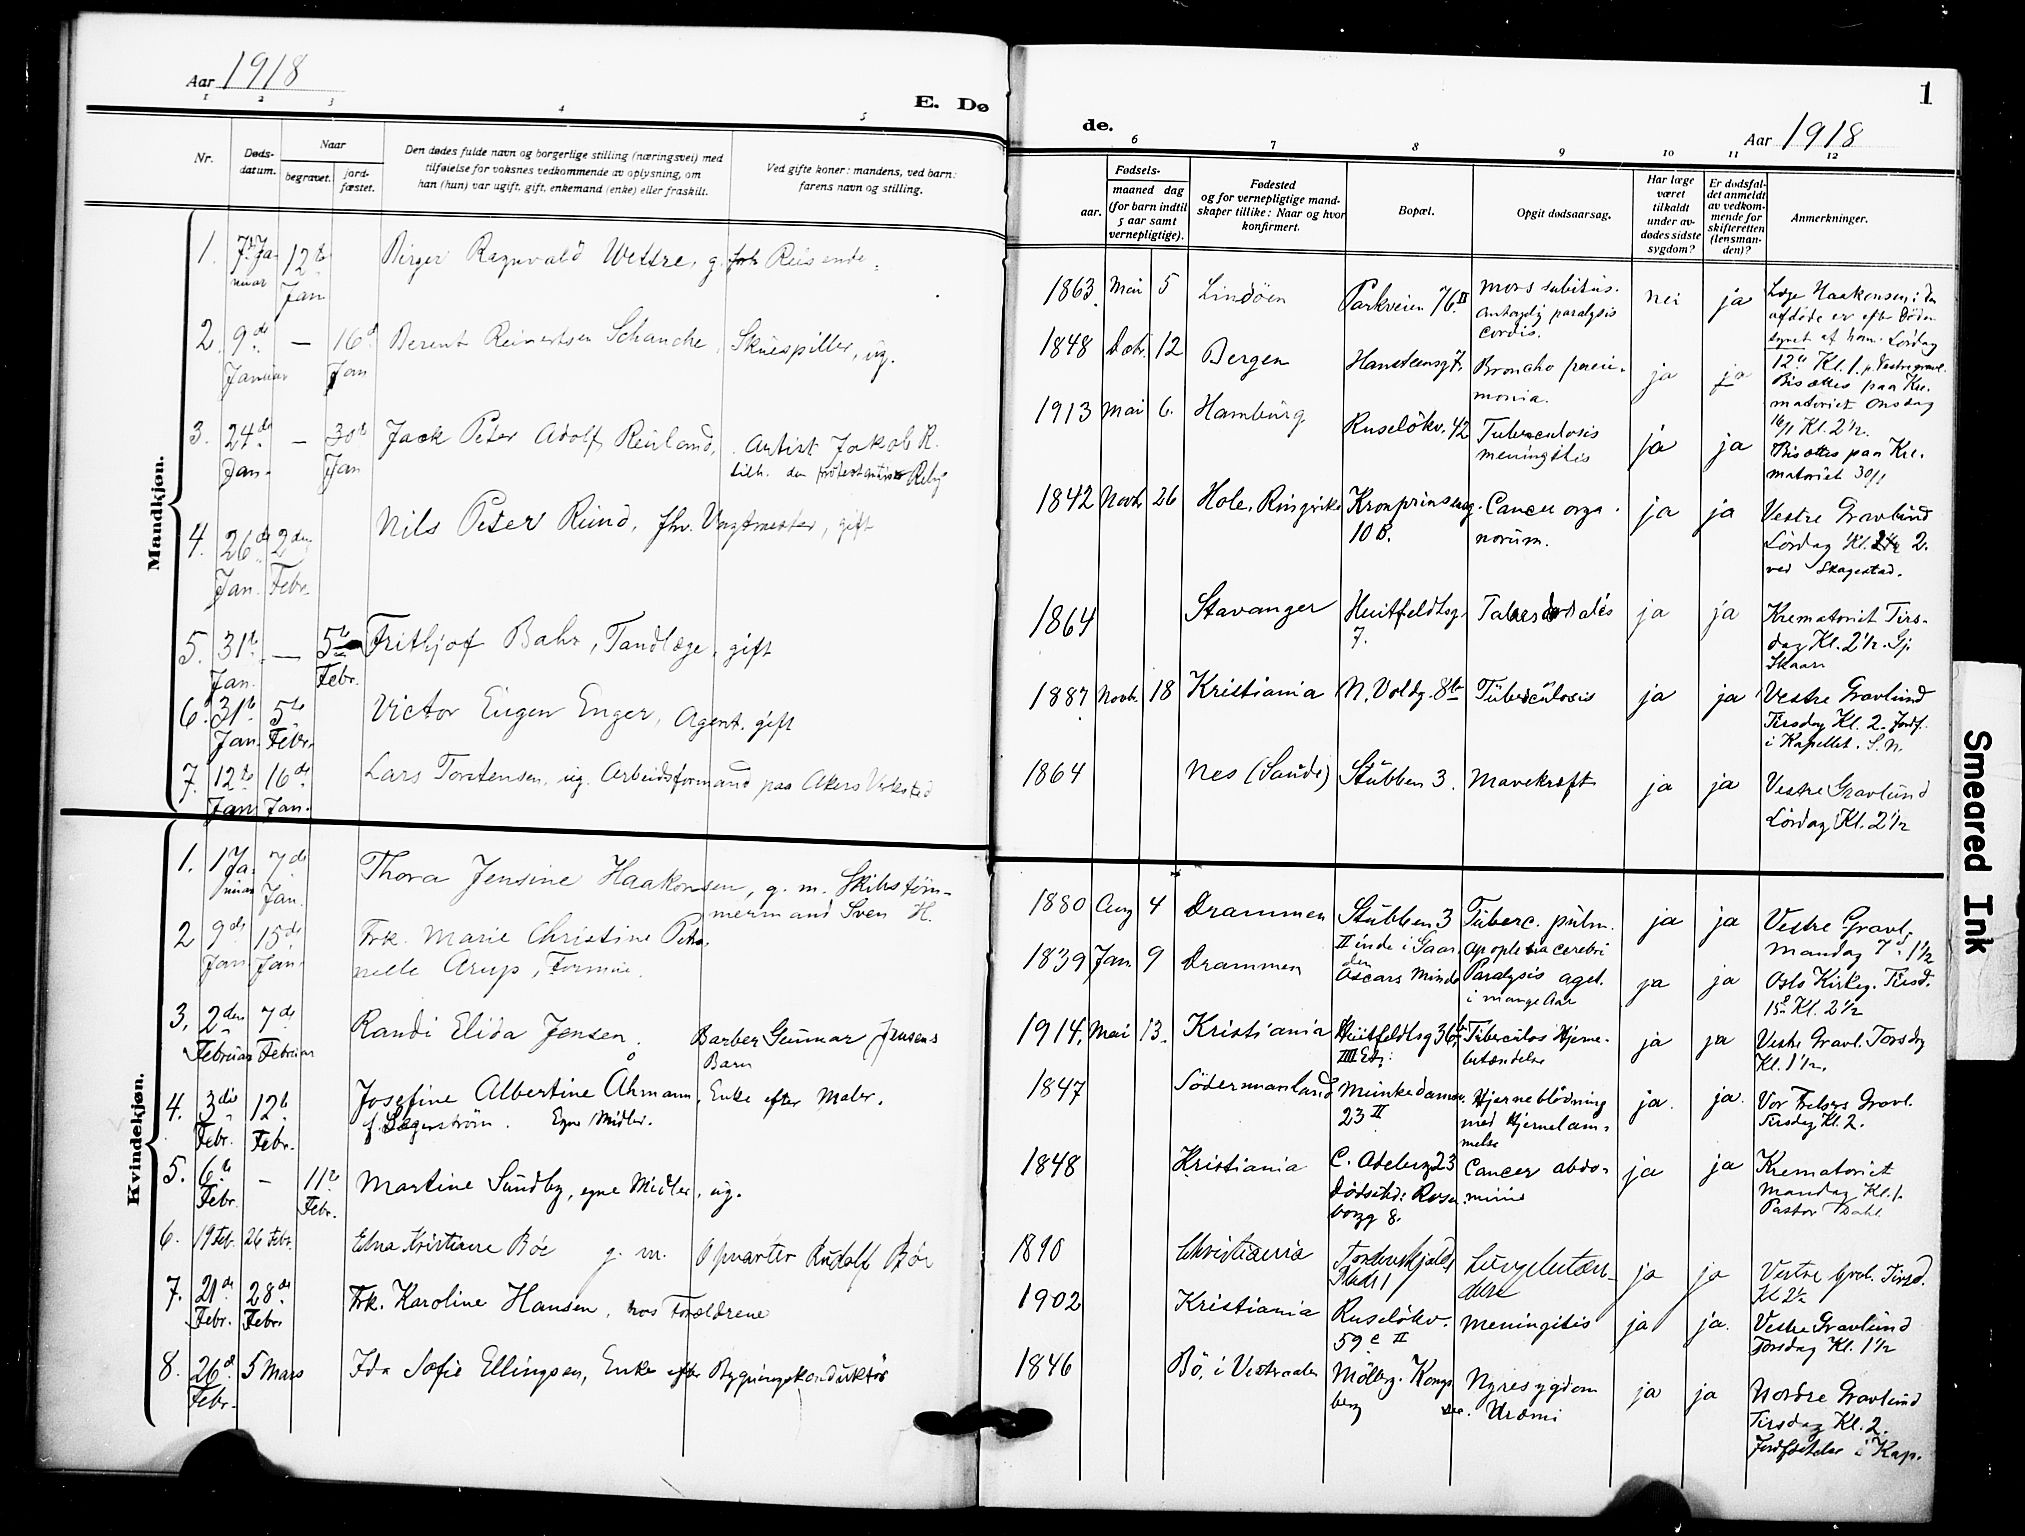 Aar 1918
E. Dø
1 2 3 4 5
Nr.
Døds-
datum.
Naar
begravet.
jord-
fæstet.
Den dødes fulde navn og borgerlige stilling (næringsvei) med
tilføielse for voksnes vedkommende av oplysning, om
han (hun) var ugift, gift, enkemand (enke) eller fraskilt.
Ved gifte koner: mandens, ved barn:
farens navn og stilling.
Mandkjøn.
1. 7de Ja- 12te Birger Regnvald Wettre, g. Reisende.
nuar Jan
2. 9de — 16d Berent Reinertsen Schanche, Skuespiller, ug.
Januar Jan
3. 24de — 30te Jack Peter Adolf Reuland, Artist Jakob R.
Jan. Jan tilh. den
4. 26de 2den Nils Peter Rund, fhv. Vagtmester, gift
Jan. Febr.
5. 31te — 5te Frithjof Bahr, Tandlæge, gift
Jan. Febr.
6. 31te 5te Victor Eugen Enger, Agent, gift
Jan. Febr.
7. 12te 16de Lars Torstensen, ug. Arbeidsformand paa Akers Verksted
Jan Jan.
Kvindekjøn.
1. 1 Ja- 7de Thora Jensine Haakonsen, g. m. Skibstöm-
nuar Jan. mermand Sven H.
2 9de 15de Frk. Marie Christine Petro-
Jan Jan. nelle Arup, Formue.
3. 2den 7de Randi Elida Jensen. Barber Gunnar Jensens
Februar Februar Barn
4. 3die 12te Josefine Albertine Åhmann, Enke efter Maler.
Febr. Febr. f. Lagerström. Egne Midler.
5. 6te — 11te Martine Sundby, egne Midler, ug.
Febr. Febr.
6. 19 Feb. 26 Febr. Edna Kristiane Böe g. m. Opvarter Rudolf Böe
7. 21de 28de Frk. Karoline Hansen, hos Forældrene
Febr. Febr.
8. 26d. 5 Mars Ida Sofie Ellingsen, Enke efter Bygningskonduktör
Febr.
de.
1
Aar 1918
6 7 8 9 10 11 12
Fødsels-
aar.
maaned dag
(for barn indtil
5 aar samt
vernepligtige).
Fødested
og for vernepligtige mand-
skaper tillike: Naar og hvor
konfirmert.
Bopæl.
Opgit dødsaarsag.
Har læge
været
tilkaldt
under av-
dødes sidste
sygdom?
Er dødsfal-
det anmeldt
av vedkom-
mende for
skifteretten
(lensman-
den)?
Anmerkninger.
1863. Mai 5 Lindöen Parkveien 76 II mors subitus. nei ja Læge Haakonsen i den
antagelig paralysis afdöde er efter Döden
cordis. synet af ham. Lördag
12te Kl. 1. p. Vestre gravl.
1848 Decbr. 12 Bergen Hansteensg 7. Broncho pneu- ja ja Bisættes paa Kre-
monia. matoriet Onsdag
16/1 Kl. 2½.
1913 Mai 6. Hamburg Ruselökv. 42 Tuberculosis ja ja Bisættes paa Kre-
meningitis matoriet 30/1
1842 Novb. 26 Hole, Ringerike Kronprinseng. Cancer orga- ja ja Vestre Gravlund
10 B. norum. Lördag Kl. 2.
ved Skagestad.
1864 Stavanger Huitfeldtsg. Tabes dorsales ja ja Krematoriet Tirs-
7. dag Kl. 2½. Gj.
Skaar
1887 Novb. 18 Kristiania N. Voldg. 8b Tuberculosis ja ja Vestre Gravlund
Tirsdag Kl. 2. Jordf.
i Kapellet. S. N.
1864 Nes (Saude) Stubben 3. Mavekræft ja ja Vestre Gravlund
Lördag Kl. 2½
1880 Aug 4 Drammen Stubben 3 Tuberc. pulm. ja ja Vestre Gravl.
II inde i Gaar- Mandag 7d 1½
den
1839 Jan. 9 Drammen Oscars Minde apoplexia cerebri ja ja Oslo Kirkeg. Tirsd.
Paralysis aget. 15de Kl. 2½
i mange Aar
1914. Mai 13. Kristiania Huitfeldtsg 36b Tuberculos Hjerne- ja ja Vestre Gravl. Torsdag
IIII Etg. betændelse Kl. 1½.
1847 Södermanland Munkedamsv. Hjerneblödning ja. ja. Vor Frelsers Gravl.
23 II med Hjernelam- Tirsdag Kl. 2.
melse
1848 Kristiania C. Adelersg 23 Cancer abdo- ja ja Krematoriet
Dödsstd: Rosen- minis Mandag Kl. 1.
borgg 8. Pastor Dahl
1890 Christiania Tordenskjolds Lungebetæn- ja ja Vestre Gravl. Tirsd.
Plads 1 delse Kl 2½
1902 Kristiania Ruselökv. Meningitis ja ja. Vestre Gravlund
59 c II Torsdag Kl. 1½
1846 Bö, i Vesteraalen Möllerg. Kongs- Nyresygdom ja ja Nordre Gravlund
berg Uræmi Tirsdag Kl. 2.
Jordfæstelse i Kap.
Smeared Ink